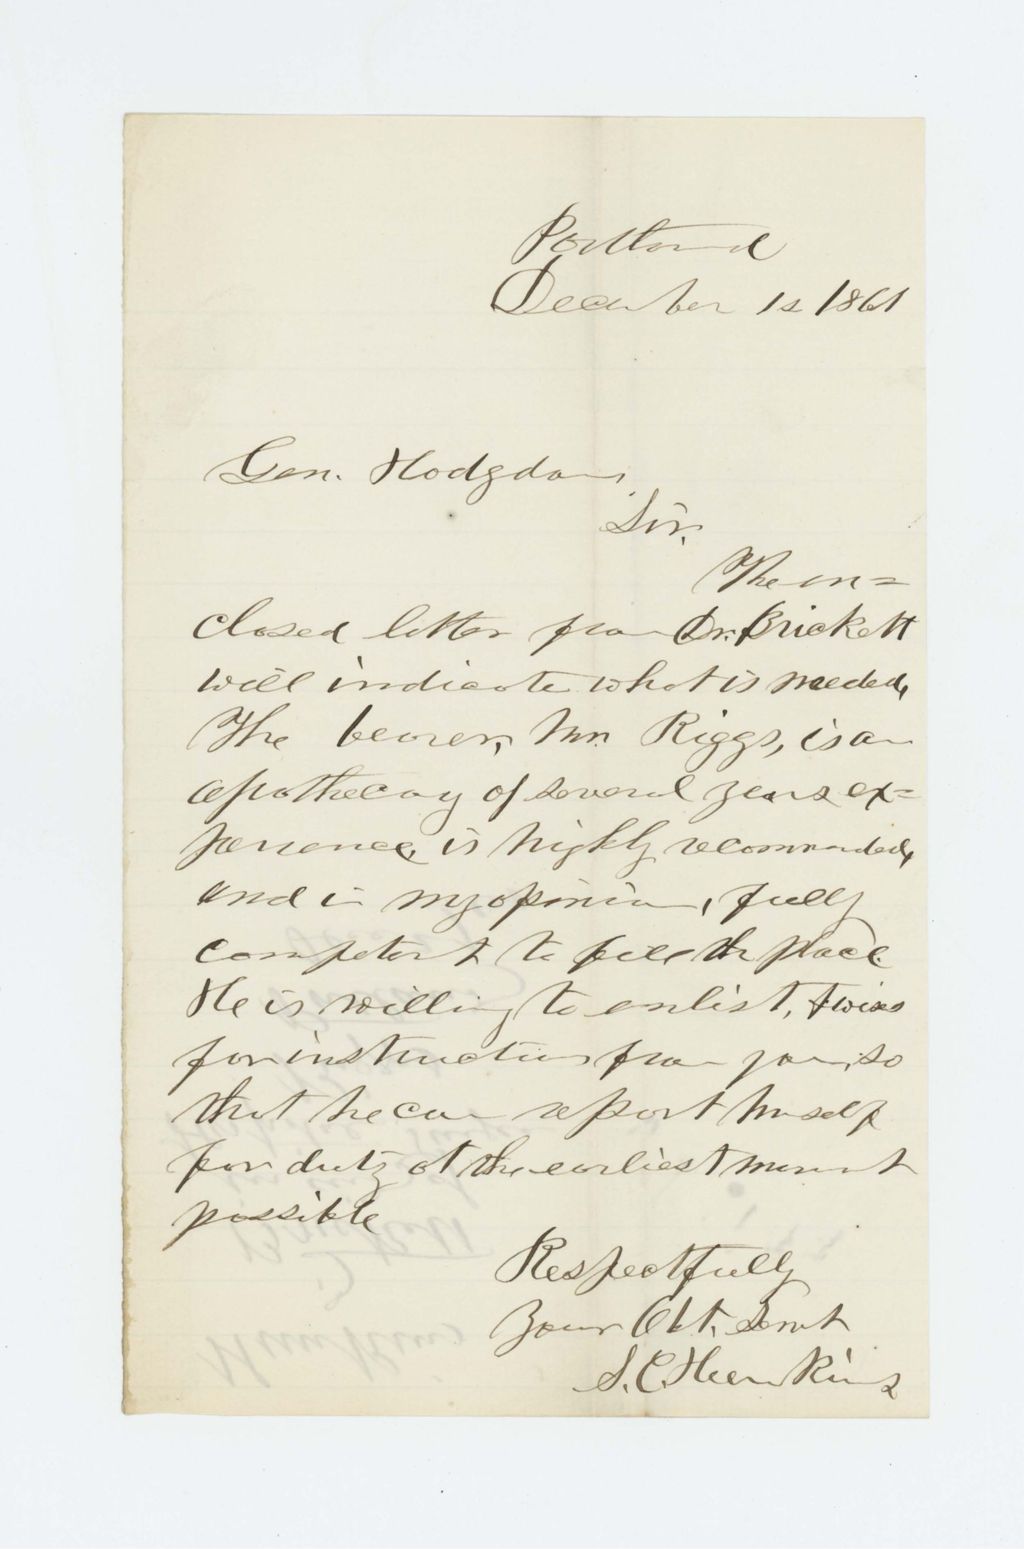 Portland
December 12 1861
Gen. Hodgdon,
Sir.
The en=
closed letter from Dr. Brickett
will indicate what is needed,
The bearer, Mr. Riggs, is an
apothecary of several years ex=
perience, is highly recommended,
and in my opinion, fully
competent to fill the place.
He is willing to enlist,
for instructions from you, so
that he can report himself
for duty at the earliest moment
possible
Respectfully
Your Obt. Servt
S. C. Hunkins